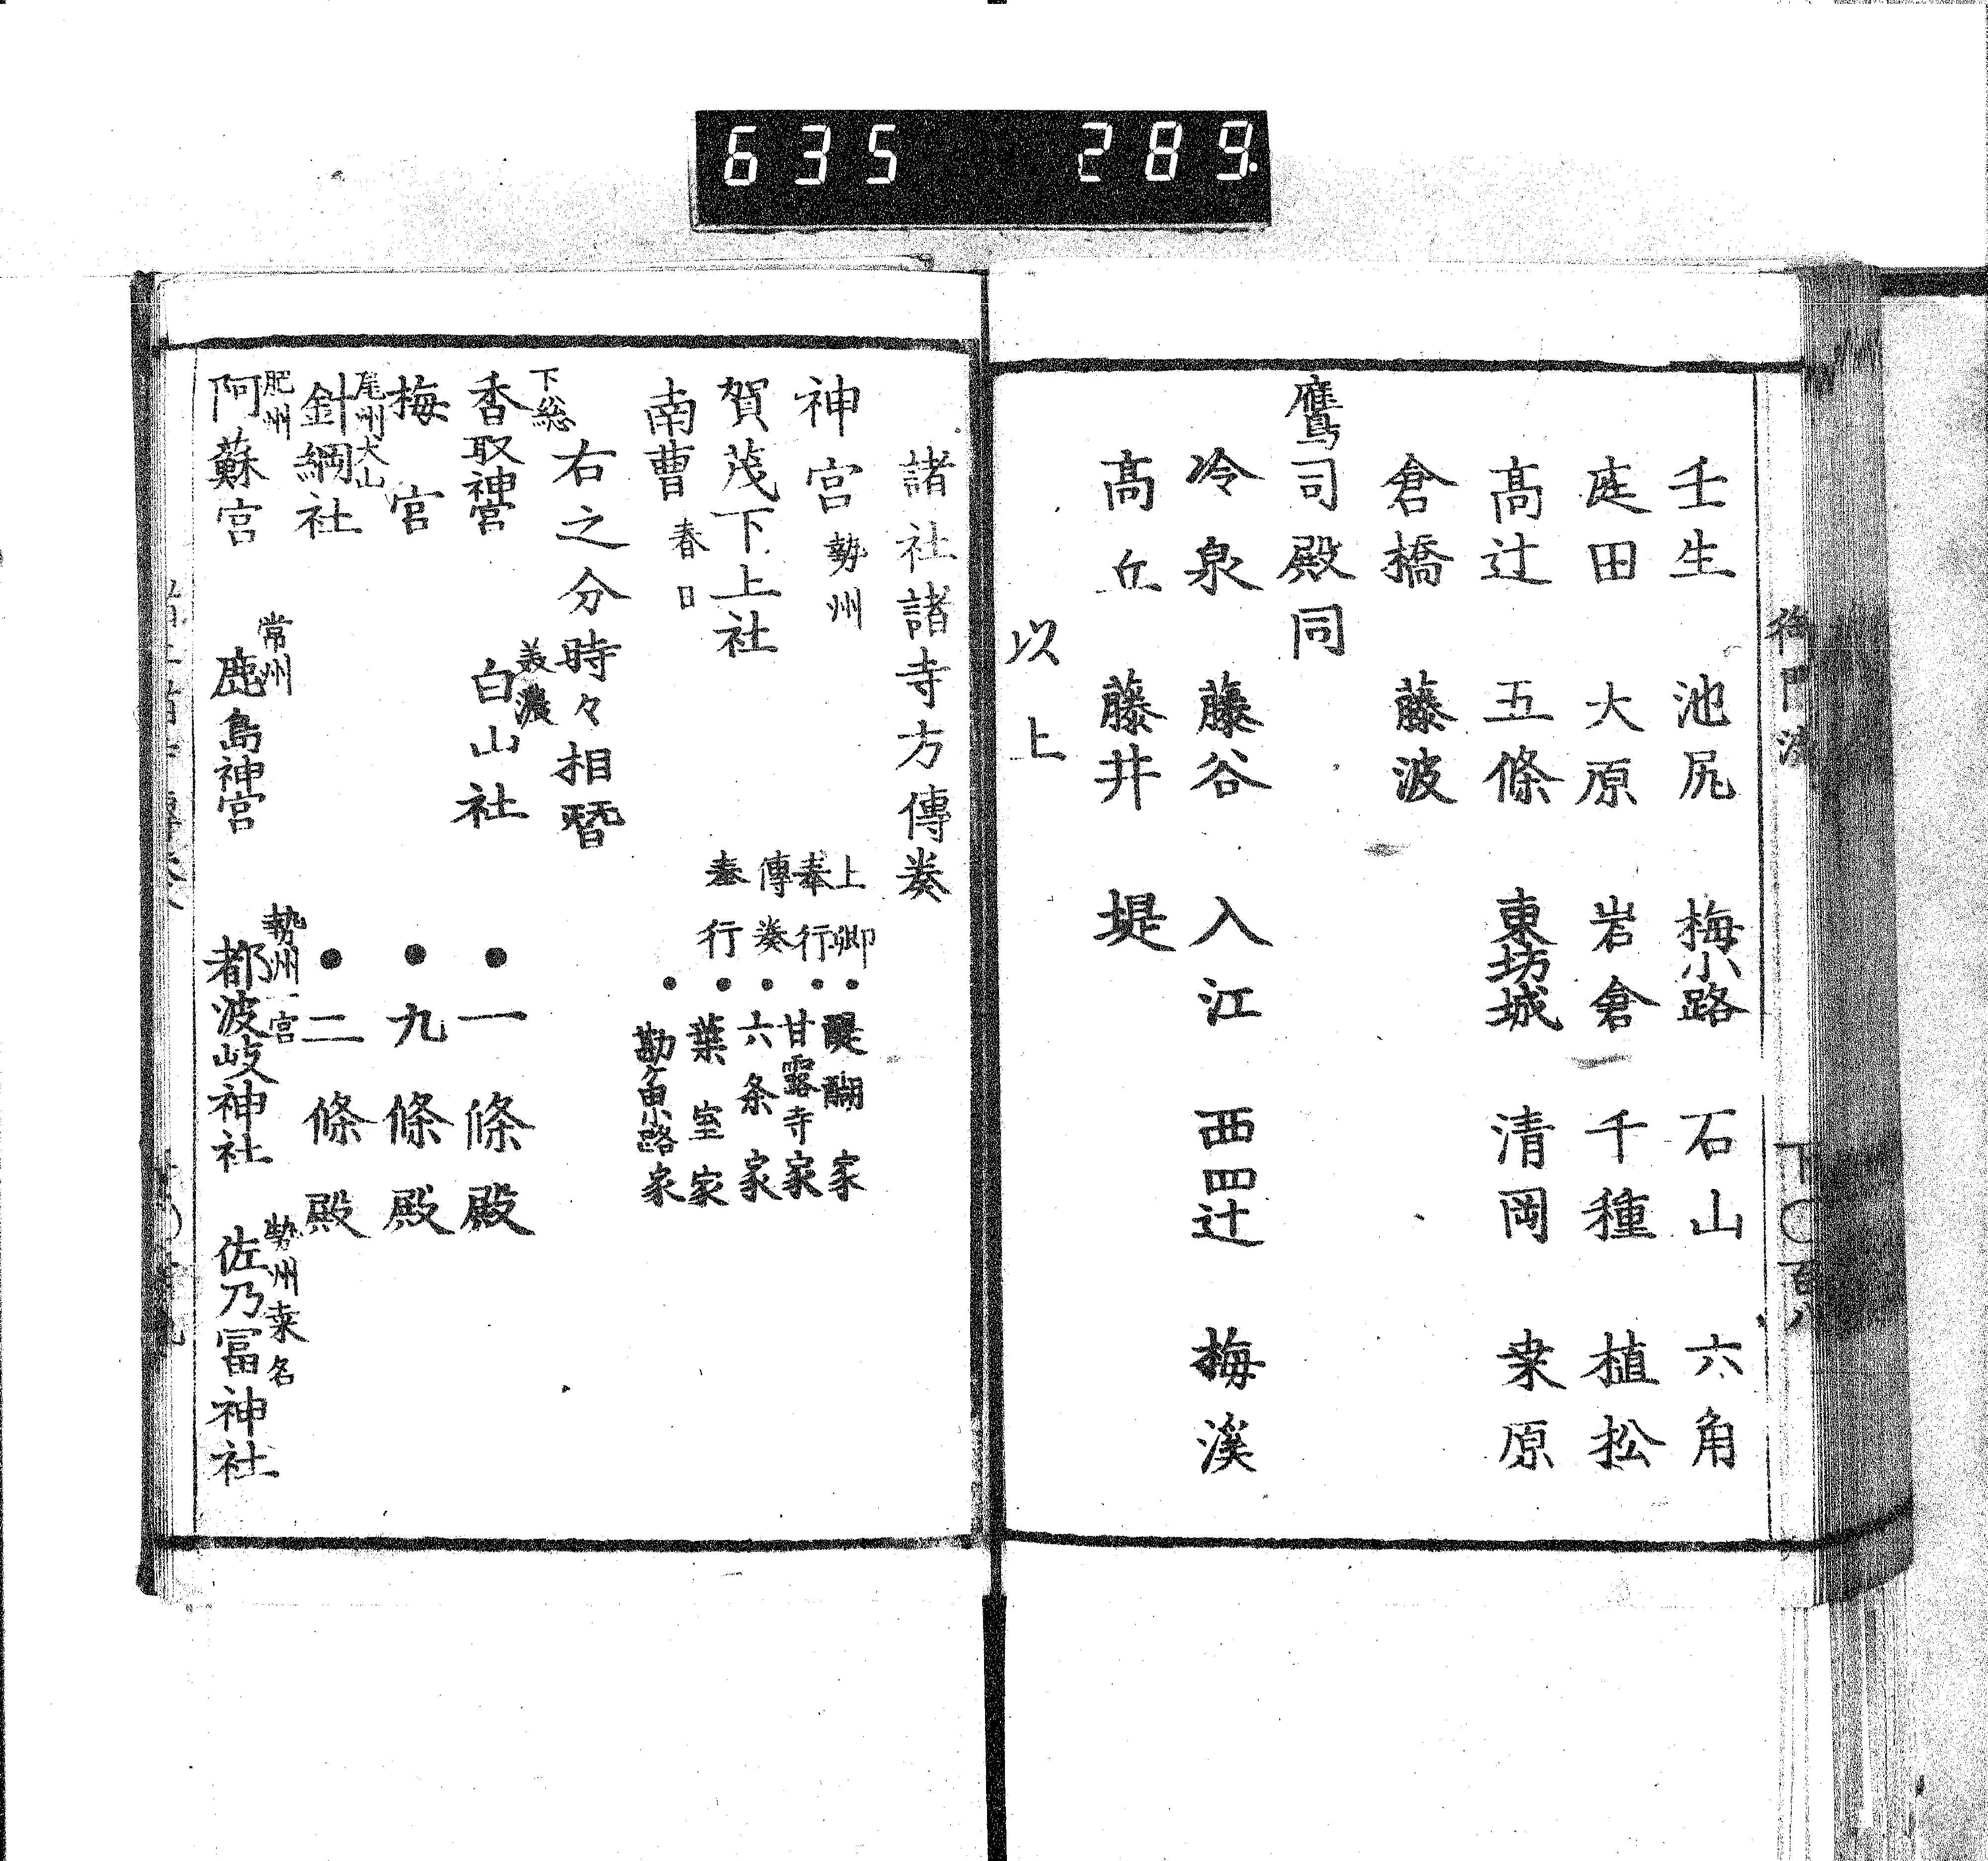 635 289
御門流
下〇百八
壬生 池尻 梅小路 石山 六角
庭田 大原 岩倉 千種 植松
髙辻 五條 東坊城 清岡 桒原
倉橋 藤波
鷹司殿同
冷泉 藤谷 入江 西四辻 梅溪
髙丘 藤井 堤
以上
諸社諸寺方傳奏
神宮 勢州 上卿 • 醍醐家
奉行 • 甘露寺家
賀茂下上社 傳奏 • 六条家
奉行 • 葉室家
南曹 春日 • 勘ケ由小路家
右之分時々相暦
下総 香取神宮 美濃 白山社 • 一條殿
梅宮 • 九條殿
尾州犬山 針綱社 • 二條殿
肥州 阿蘇宮 常州 鹿島神宮 勢州一宮 都波岐神社 勢州桒名 佐乃冨神社